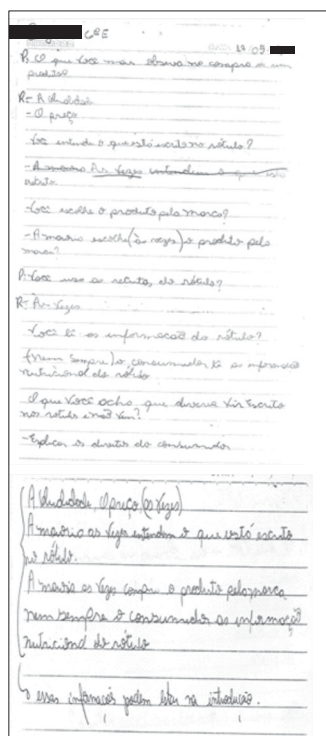 CSE
19 09
P. O que você mais observa na compra de um
produto?
R- A Validade
- O preço
Você entende o que está escrito no rótulo?
- A maioria As vezes entendem o que está
escrito.
- Você escolhe o produto pela marca?
- A maioria escolhe (às vezes) o produto pela
marca?
P. Você usa as receitas do rótulo?
R- As vezes
Você lê as informação do rótulo?
(Nem sempre) o consumidor lê as informação
nutricional do rótulo
O que você acha que deveria vir Escrito
nos rotulos e não vem?
- Explicar os direitos do consumidor
A validade, O preço, (as vezes)
A maioria as vezes entendem o que está escrito
no rótulo.
A maioria as vezes compra o produto pela marca,
nem sempre o consumidor as informação
nutricional do rótulo
esses informações podem estar na introdução.